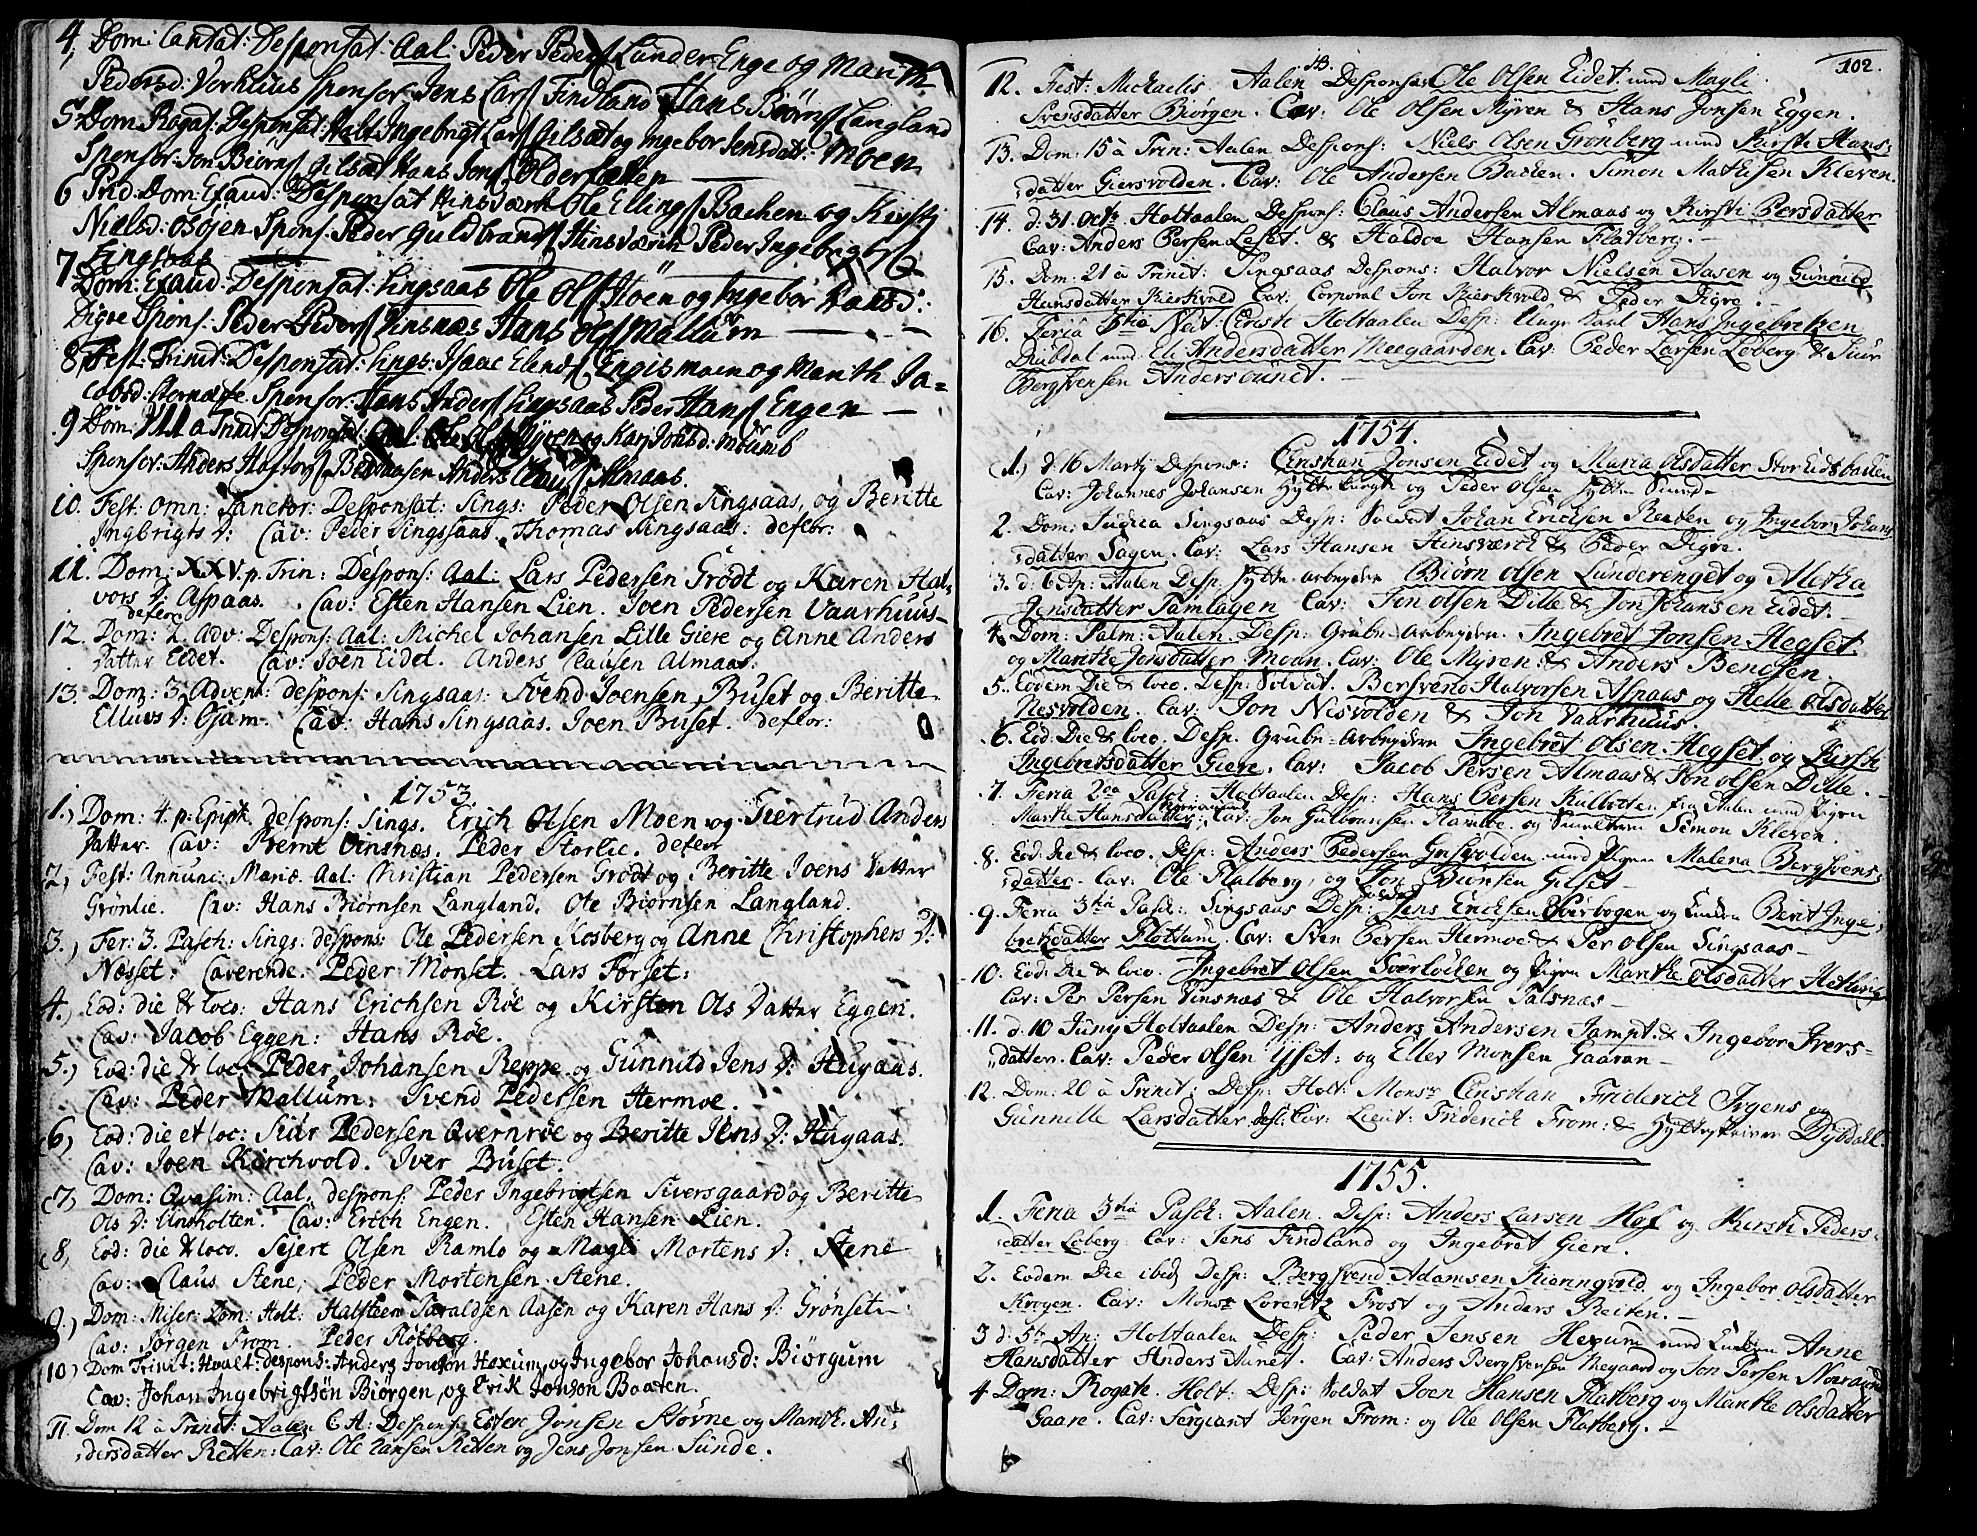 4, Dom: Cantat: Desponsat: Aal: Peder Peders Lunder Enge og Marith
Pedersd: Vorkhuus Sponsor: Jens Lars Findland Hans Biørns Langland
5. Dom Rogat: Desponsat: Holt Ingebrigt Lars Gilsæt og Ingebor Jensdat: Moen
Sponsor: Jon Biørns Gilsæt Hans Jons Olderløkken
6 Prid: Dom: Exaud: Desponsat Hinsværk Ole Ellings Bachen og Kirsty
Nielsd: Øsøjen Spons: Peder Guldbrands Hinsværk Peder Ingebrigts
Singsaas
7. Dom: Exaud: Desponsat: Singsaas Ole Ols Høen og Ingebor Hansd:
Digre Spons: Peder Peders Vinsnæs Hans Ols Mallum
8. Fest: Trinit: Desponsat: Sings: Isaac Elends Engismoen og Marith Ja=
cobsd: Sponsor: Hans Anders Singsaas Peder Hans Engen
9 Dom: VIII a Trinit: Desponsat: Aal: Ole Ols Myren og Kari Jonsd:
Sponsor: Anders Bendosen Anders Claus Almaas.
10. Fest: Omn: Sanctor: Desponsat: Sings: Peder Olsen Singsaas, og Beritte
Ingbrigts D: Cav: Peder Singsaas. Thomas Singsaas: defer:
11. Dom: XXV. p. Trin: Despons: Aal: Lars Pedersen Grødt og Karen Hal-
vors D: Aspaas. Cav: Esten Hansen Lien. Joen Pedersen Vaarhuus-
defer
12. Dom: 2. Adv: Despons: Aal: Michel Johansen Lille Giere og Anne Anders
Datter Eidet. Cav: Joen Eidet. Anders Clausen Almaas:
13. Dom: 3. Advent: despons: Singsaas: Svend Joensen Buset og Beritte
Ellevs D: Cav: Hans Singsaas. Joen Buset. defer:
1753
1.) Dom: 4. p: Epiph. despons: Sings. Erich Olsen Moen og Giertrud Anders
Datter. Cav: Bernt Vinsnæs. Peder Storlie. defer
2, Fest: Annunc: Mariæ. Aal: Christian Pedersen Grødt og Beritte Joens Datter
Grønlie. Cav: Hans Biørnsen Langland. Ole Biørnsen Langland.
3.) Fer: 3. Pasch: Sings: despons: Ole Pedersen Kosberg og Anne Christophers D:
Næsset: Caverende. Peder Monset. Lars Forset:
4.) Eod: die & loco: Hans Erichsen Røe og Kirsten Ols Datter Eggen.
Cav: Jacob Eggen: Hans Røe.
5.) Eod: die & loc. Peder Johansen Reppe og Gunnild Jens D: Hugaas.
Cav: Peder Mallum: Svend Pedersen Hermoe.
(6) Eod: die et loc: Siur Pedersen Qvernrøe og Beritte Jens D: Hugaas.
Cav: Joen Kirchvold. Iver Buset.
(7) Dom: Qvasim: Aal. despons: Peder Ingebrigtsen Siversgaard og Beritte
Ols D: Unsholten. Cav: Erich Engen. Esten Hansen Lien.
(8, Eod: die & loco. Sejert Olsen Ramlo og Magli Mortens D: Stene
Cav: Claus Stene, Peder Mortensen Stene.
(9.) Dom: Miser: Dom: Holt: Halsteen Taraldsen Aasen og Karen Hans D: Grønset-
Cav: Jørgen From. Peder Flotberg.
10) Dom Trinit: Hoalt: despons: Anders Jonson Hoxum og Ingebor Johansd: Biørgum
Cav: Johan Ingebrigtsøn Biørgen, og Erik Jonson Baaten.
11. Dom 12 à Trinit: Aalen C.A: Despons: Esten Jonsen Støvne og Marith An:
dersdatter Reiten: Cav: Ole Hansen Reiten og Jens Jonsen Sunde.
102.
12. Fest: Michaelis. Aalen Desponsat Ole Olsen Eidet med Magli
Svensdatter Biørgen. Cav: Ole Olsen Myren & Hans Jonsen Eggen.
13. Dom: 15 à Trin: Aalen Despons: Niels Olsen Grønberg med Kirsti Hans:
datter Giersvolden. Cav: Ole Andersen Backen. Simon Mathisen Kleven.
14. d: 31 Octr. Holtaalen Despons: Claus Andersen Almaas og Kirsti Persdatter
Cav: Anders Persen Leset. & Haldoe Hansen Flatberg. -
15. Dom: 21 à Trinit: Singsaas Despons: Halvor Nielsen Aasen og Gunnild
Hansdatter Kirkvold Cav: Corporal Jon Kirkvold, & Peder Digre. -
16. Feria 3tia Nat: Christi Holtaalen Desp: Unge Karl Hans Ingebretsen
Dubdal med Eli Andersdatter Meegaarden. Cav: Peder Larsen Løberg & Siur
Bergsvensen Andersaunet. -
1754.
(1.) d: 16 Marty Despons: Christian Jonsen Eidet og Maria Olsdatter Stor Eidsbacken
Cav: Johannes Johansen Hytte og Peder Olsen Hytte
2. Dom: Judica Singsaas Desp: Soldat Johan Erichsen Reaten og Ingebor Johans
datter Sagen. Cav: Lars Hansen Hinsværck & Peder Digre.
3. d: 6 Ap: Aalen Desp: Hytte-arbeydere Biørn Olsen Lunderenget og Aletha
Jensdatter Tamlagen Cav: Jon Olsen Dille & Jon Johansen Eidet.
4. Dom: Palm: Aalen Desp: Grube-arbeydere. Ingebret Jonsen Hegset.
og Marithe Jonsdatter Moan. Cav: Ole Myren & Anders Bendsen.
5. Eodem Die & loco. Desp: Soldat. Bersvend Halvorsen Aspaas og Helle Olsdatter
Nesvolden. Cav: Jon Nesvolden & Jon Vaarhuus.
6. Eod: Die & loco. Desp: Grube-arbeydere Ingebret Olsen Hegset og Kirsti
Ingebretsdatter Giere. Cav: Jacob Persen Almaas & Jon Olsen Dille. -
7. Feria 2da Pasch: Holtaalen Desp: Hans Persen Kulbotten fra Aalen med Pigen
Marthe Hansdatter Cav: Jon Gulbransen og Simon Kleven.
8. Eod: Die & loco. Desp: Anders Pedersen Gresvolden med Pigen Malena Bergsvens:
datter. Cav: Ole Flatberg, og Jon Biørnsen Gilset -
9. Feria 3tia Pasch: Singsaas Desp: Jens Erichsen og Enken Berit Inge:
bretsdatter Flottum. Cav: Sven Persen Hermoe & Per Olsen Singsaas -
10. Eod: Die & loco. Ingebret Olsen Svorløcken og Pigen Marithe Olsdatter
Cav: Per Persen Vinsnæs & Ole Halvorsen Talsnæs -
11. d: 10 Juny Holtaalen Desp: Anders Andersen Jampt & Ingebor Ivers=
datter. Cav: Peder Olsen Ysset: og Ellev Monsen Gaaran -
12. Dom: 20 à Trinit: Desp: Holt: Monsr Christian Friderich Irgens og
Gunnille Larsdatter. Cav: Lieut: Friderich From: & Hytteskriver Dybdall.
1755.
1. Feria 3tia Pasch: Aalen. Desp: Anders Larsen Hof og Kirsti Peders:
datter Løberg. Cav: Jens Findland og Ingebret Giere.
2. Eodem Die ibid Desp: Bergsvend Adamsen Kiørngvold og Ingebor Olsdatter
Krogen. Cav: Monsr Lorentz Frost og Anders Reiten. -
3 d: 5te Ap: Holtaalen Desp: Peder Jensen Hexum med Enken Anne
Hansdatter Anders Aunet. Cav: Anders Bergsvensen Meegaard og Jon Persen
4 Dom: Rogate. Holt: Desp: Soldat Joen Hansen Flatberg og Marithe Olsdatter
Gaare. Cav: Sergiant Jørgen From: og Ole Olsen Flatberg. -